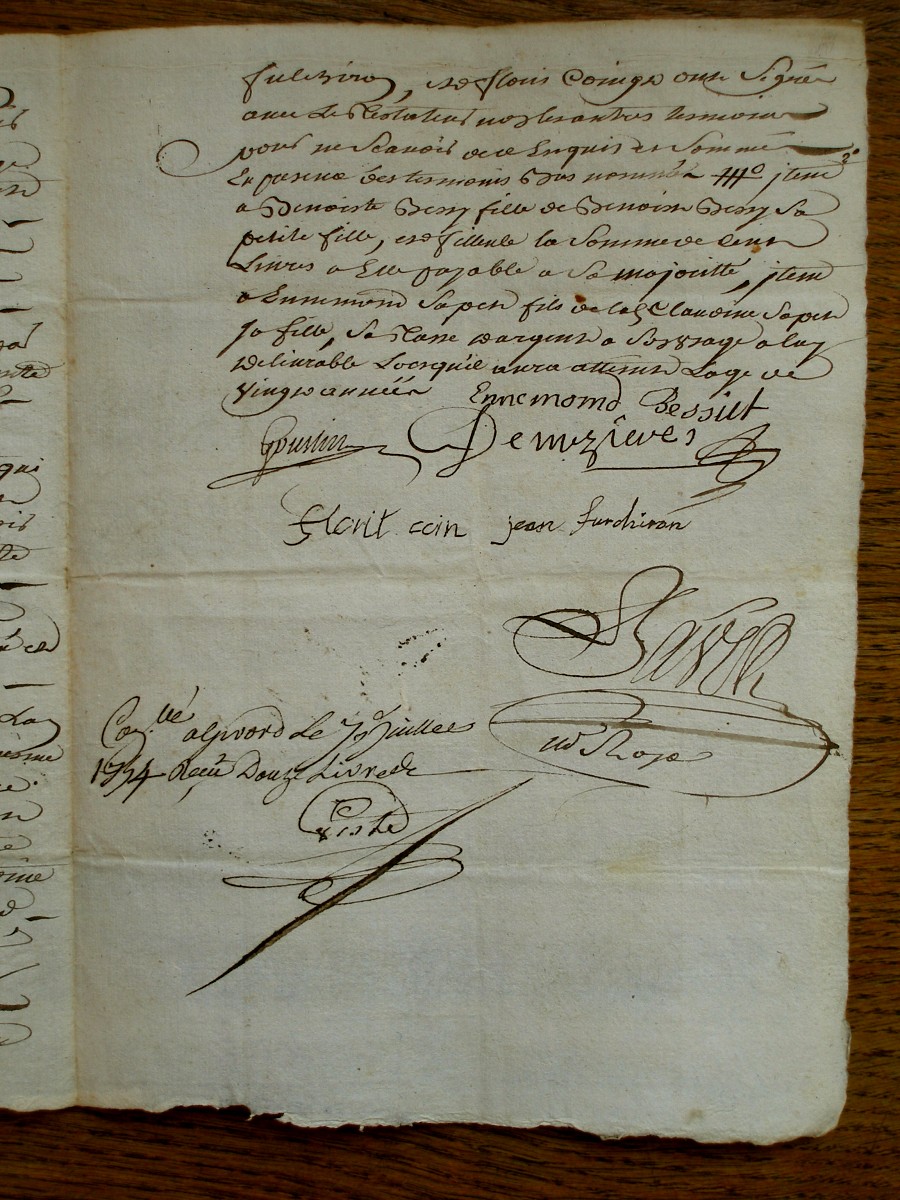 fulchiron, et floris Coing ont Signé
avec Le Testateur non les autres tesmoins
pour ne Scavoir de ce Enquis et Sommé
En presence des tesmoins Bas nommés jtem
a Benoiste Bessy fille de Benoist Bessy Sa
petite fille, et fillule la Somme de Cent
Livres a Elle payable a Sa majoritté, jtem
a Ennemond Sapen fils de Claudine Sapen
Sa fille, Sa Tasse d'argent a Son Usage a luy
delivrable Lorsquil aura atteint Lage de
Vingt années Ennemond Bessiet
Goustin Demezieves
florit coin jean furchiron
au Roye
Con.lé a Le Juillet
1714 Receu Douze Livres